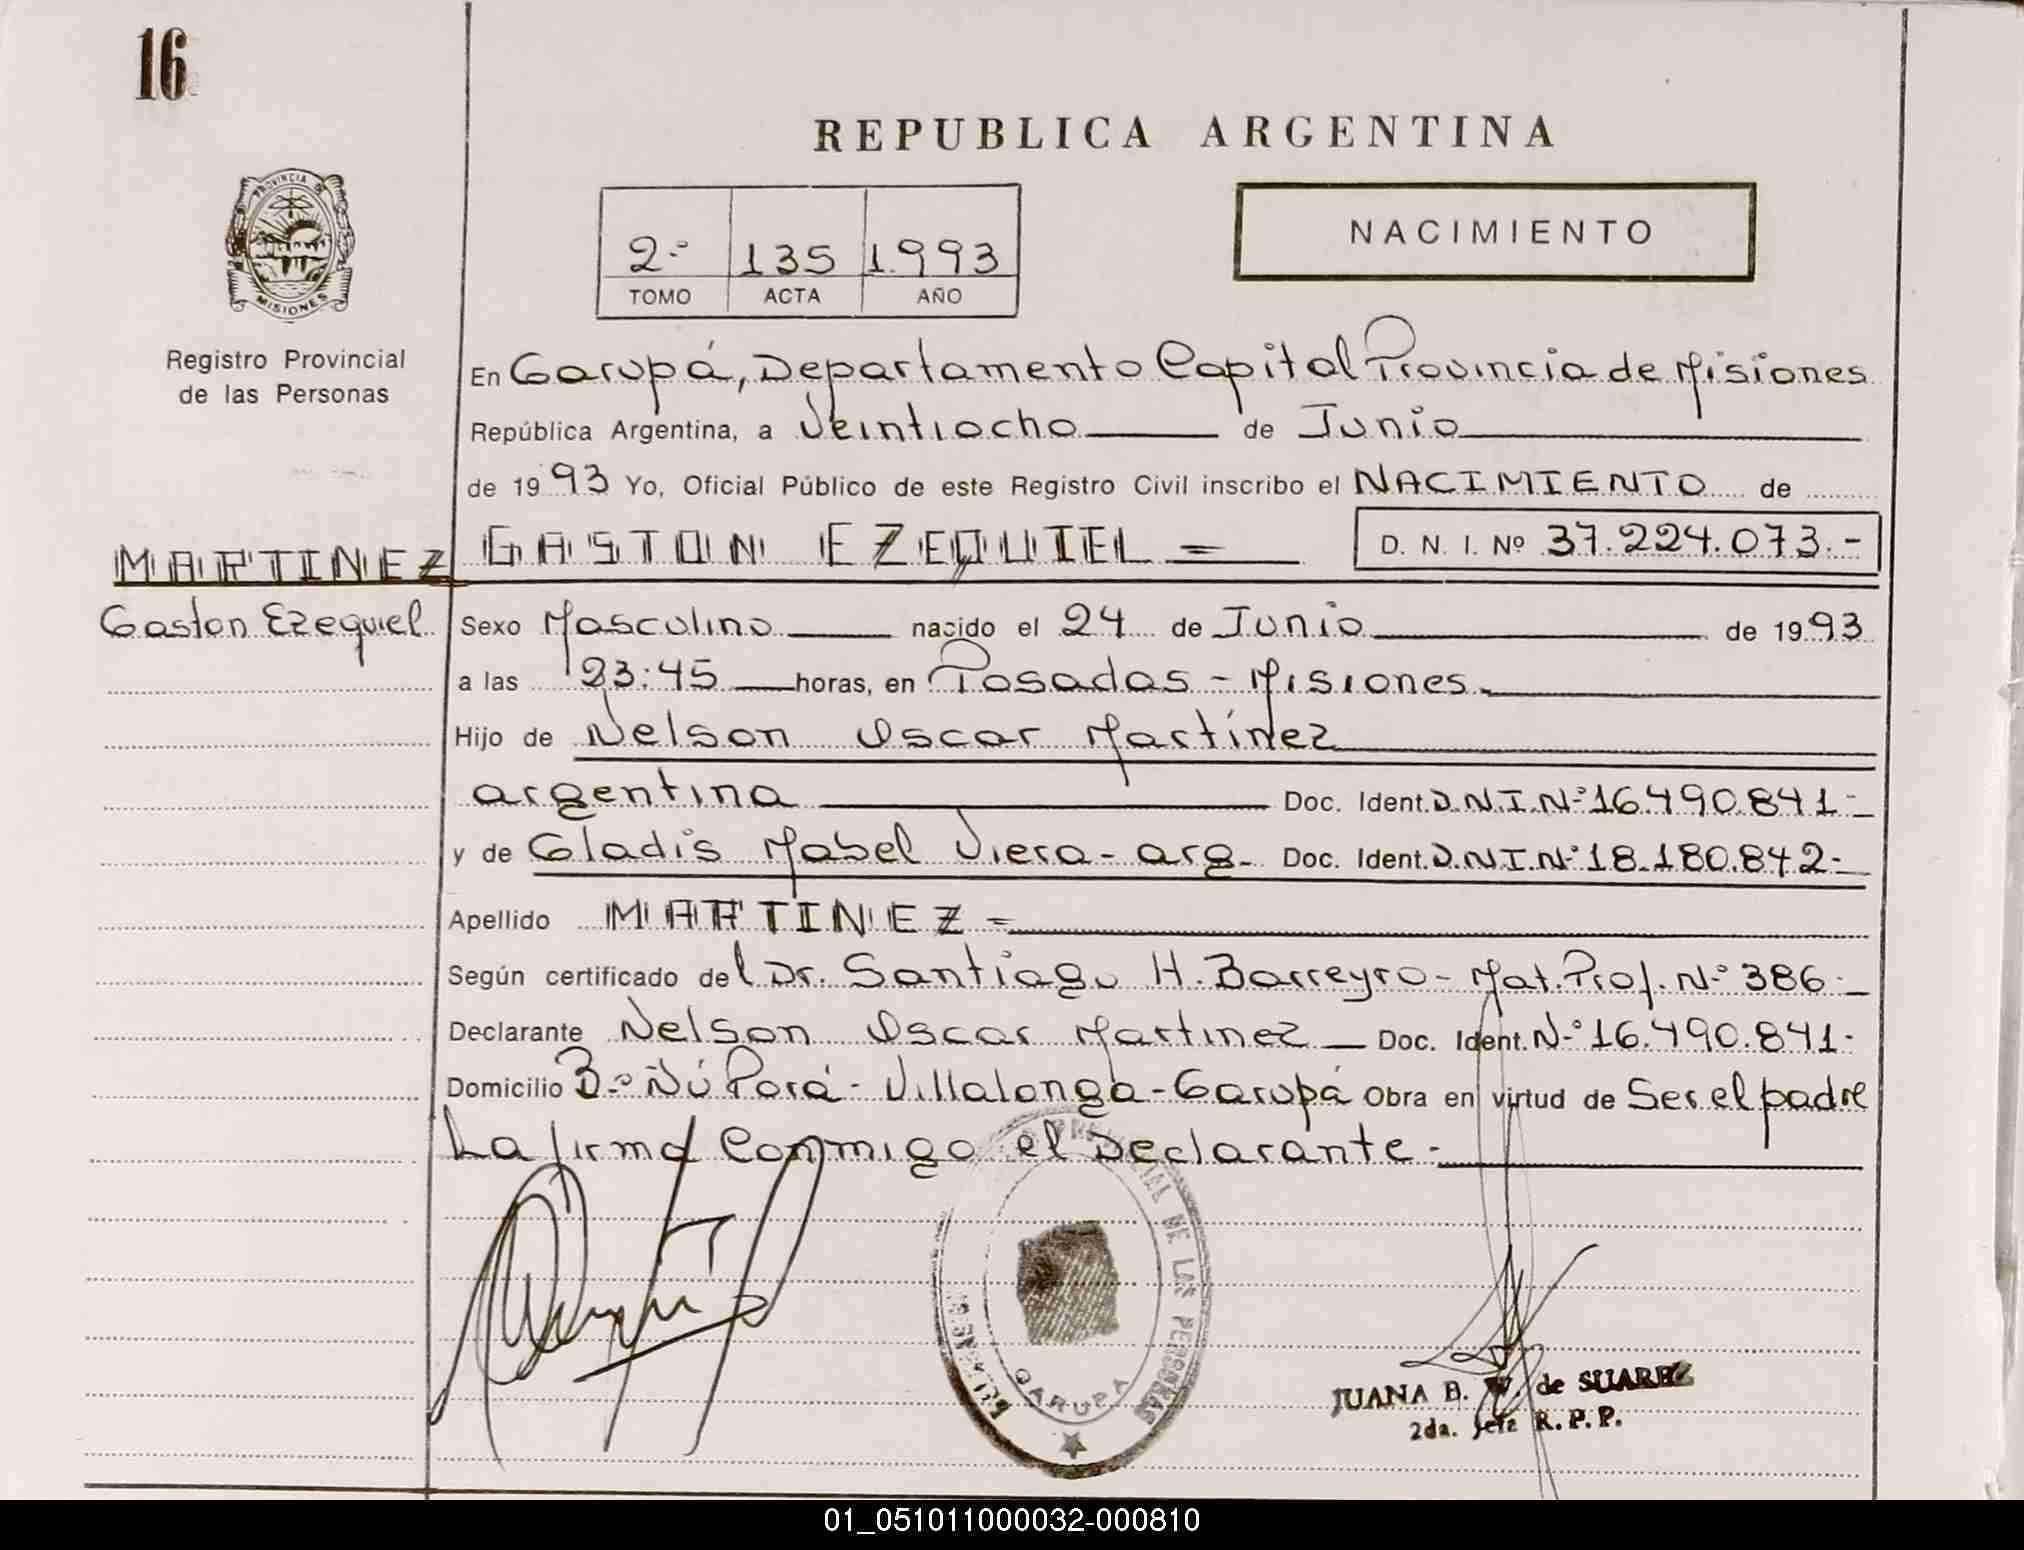 16
REPUBLICA ARGENTINA
PROVINCIA DE
MISIONES
Registro Provincial
de las Personas
2º 135 1.993
TOMO ACTA AÑO
NACIMIENTO
En Garupá, Departamento Capital Provincia de Misiones
República Argentina, a Veintiocho de Junio
de 1993 Yo, Oficial Público de este Registro Civil inscribo el NACIMIENTO de
MARTINEZ
Gaston Ezequiel
GASTON EZEQUIEL =
D. N. I. Nº 37.224.073.-
Sexo Masculino nacido el 24 de Junio de 1993
a las 23:45 horas, en Posadas - Misiones.
Hijo de Nelson Oscar Martínez
argentina Doc. Ident. D.N.I.Nº 16.490.841.-
y de Gladis Mabel Viera - arg. Doc. Ident. D.N.I.Nº 18.180.842.-
Apellido MARTINEZ =
Según certificado del Dr. Santiago H. Barreyro - Mat. Prof. Nº 386.-
Declarante Nelson Oscar Martinez Doc. Ident. Nº 16.490.841.-
Domicilio Bº Ñú Porá - Villalonga - Garupá Obra en virtud de Ser el padre
La firma Conmigo el Declarante.-
PROVINCIAL DE LAS PERSONAS
GARUPA
JUANA B. V. de SUAREZ
2da. Jefe R. P. P.
01_051011000032-000810